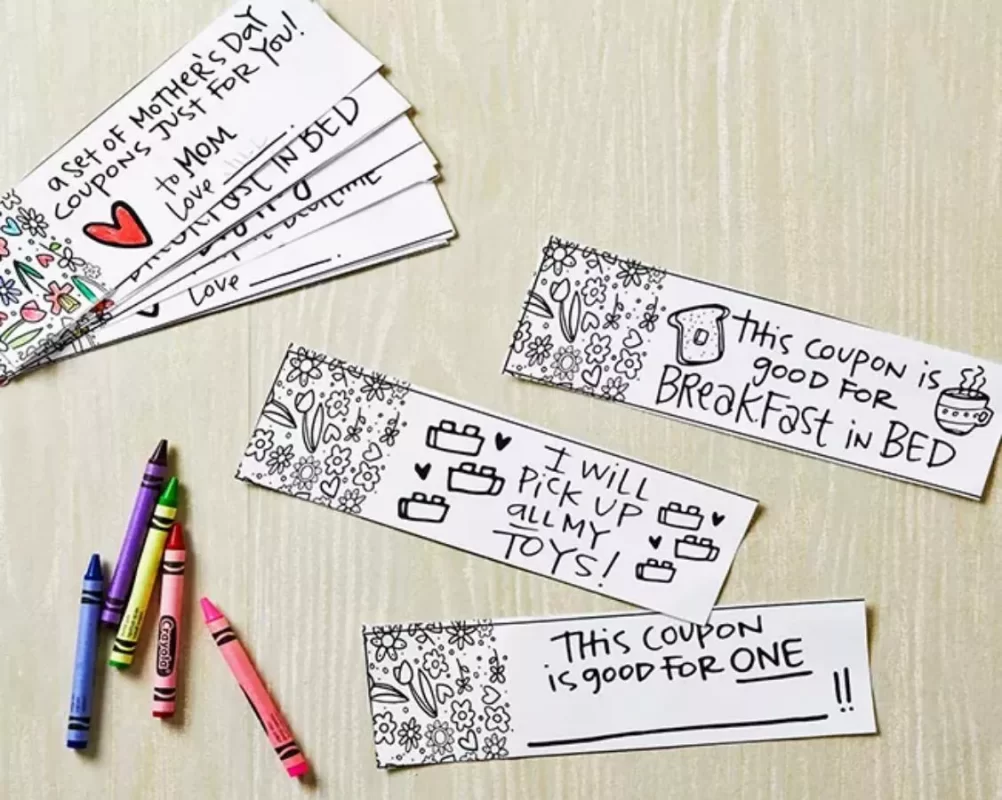 a Set OF MOTHER'S DaY
COUPONS JUST FOR YOU!
to MOM
Love
IN BED
Love
THis COUPON is
good FOR
BREaKFast iN BED
I WILL
PiCK UP
aLL MY
TOYS!
Crayola
THis COUPON
is good FOR ONE
!!